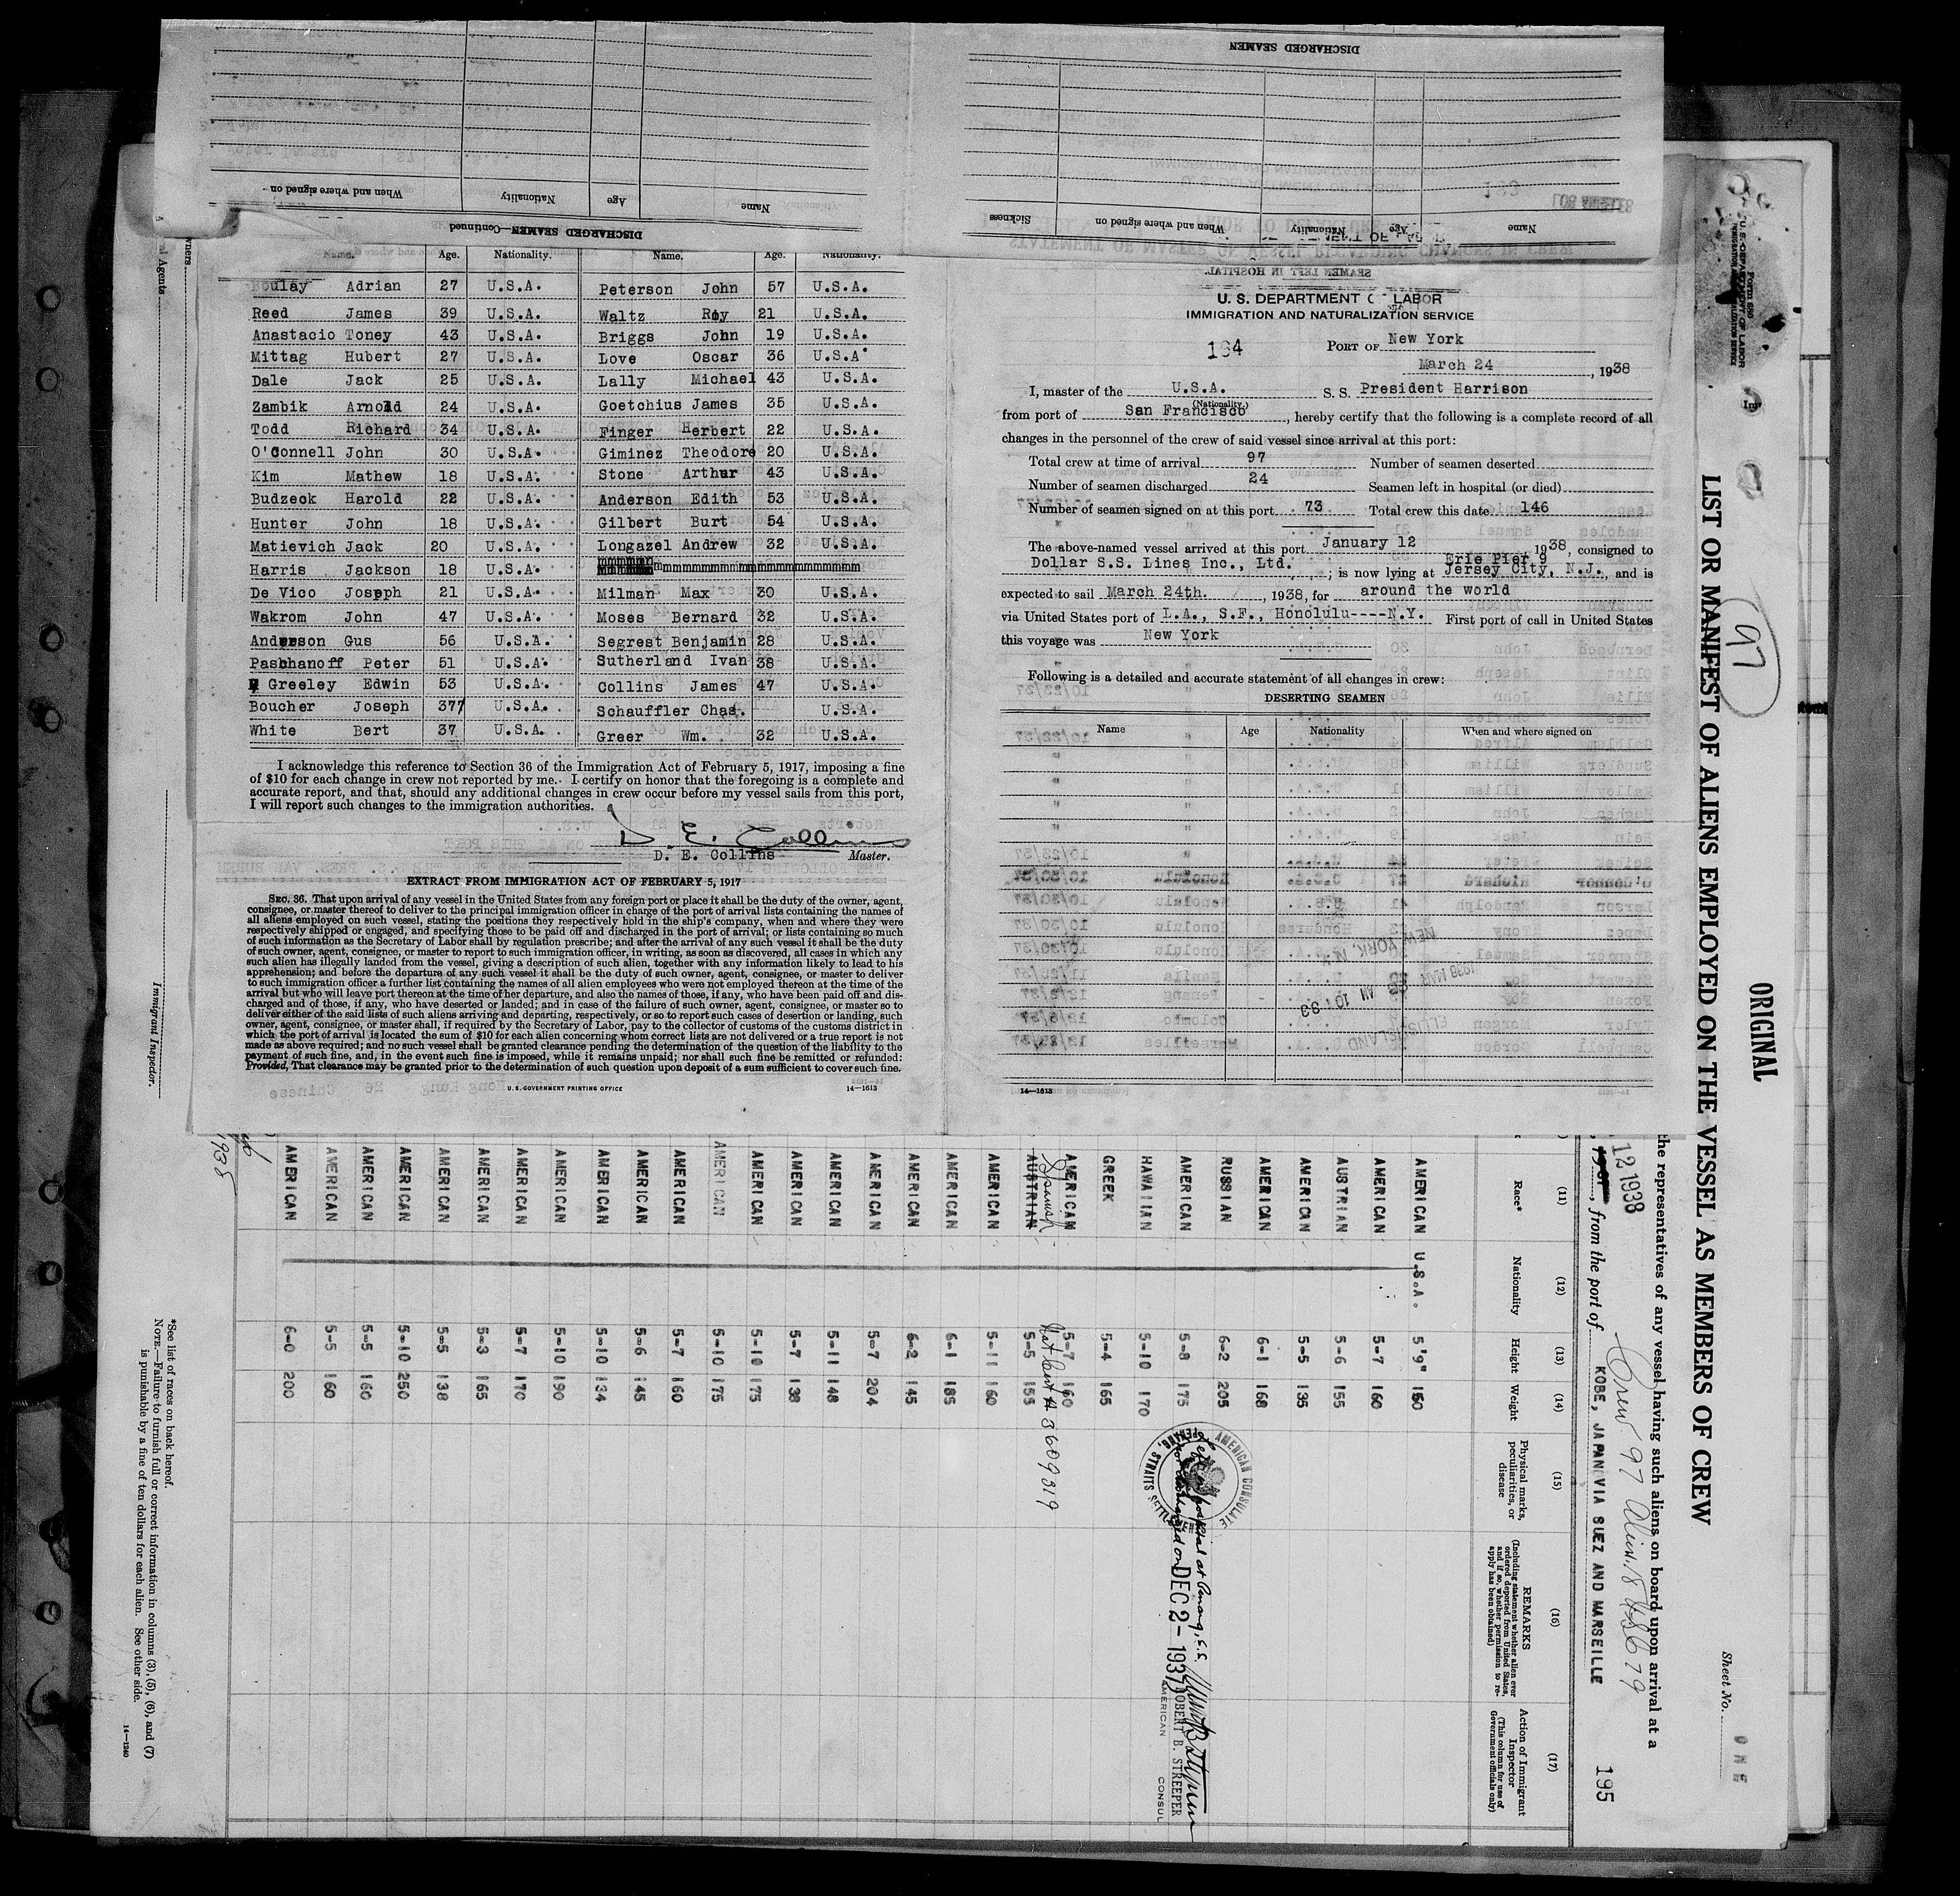 DISCHARGED SEAMEN
When and where signed on Nationality Age Name
DISCHARGED SEAMEN
Sickness When and where signed on Nationality Age Name
DISCHARGED SEAMEN—Continued
Name. Age. Nationality. Name. Age. Nationality.
Boulay Adrian 27 U.S.A. Peterson John 57 U.S.A.
Reed James 39 U.S.A. Waltz Roy 21 U.S.A.
Anastacio Toney 43 U.S.A. Briggs John 19 U.S.A.
Mittag Hubert 27 U.S.A. Love Oscar 36 U.S.A
Dale Jack 25 U.S.A. Lally Michael 43 U.S.A.
Zambik Arnold 24 U.S.A. Goetchius James 35 U.S.A.
Todd Richard 34 U.S.A. Finger Herbert 22 U.S.A.
O'Connell John 30 U.S.A. Giminez Theodore 20 U.S.A.
Kim Mathew 18 U.S.A. Stone Arthur 43 U.S.A.
Budzeck Harold 22 U.S.A. Anderson Edith 53 U.S.A.
Hunter John 18 U.S.A. Gilbert Burt 54 U.S.A.
Matievich Jack 20 U.S.A. Longazel Andrew 32 U.S.A.
Harris Jackson 18 U.S.A.
De Vico Joseph 21 U.S.A. Milman Max 30 U.S.A.
Wakrom John 47 U.S.A. Moses Bernard 32 U.S.A.
Anderson Gus 56 U.S.A. Segrest Benjamin 28 U.S.A.
Paschanoff Peter 51 U.S.A. Sutherland Ivan 38 U.S.A.
Greeley Edwin 53 U.S.A. Collins James 47 U.S.A.
Boucher Joseph 377 U.S.A. Schauffler Chas. U.S.A.
White Bert 37 U.S.A. Greer Wm. 32 U.S.A.
I acknowledge this reference to Section 36 of the Immigration Act of February 5, 1917, imposing a fine
of $10 for each change in crew not reported by me. I certify on honor that the foregoing is a complete and
accurate report, and that, should any additional changes in crew occur before my vessel sails from this port,
I will report such changes to the immigration authorities.
D. E. Collins
D. E. Collins Master.
EXTRACT FROM IMMIGRATION ACT OF FEBRUARY 5, 1917
SEC. 36. That upon arrival of any vessel in the United States from any foreign port or place it shall be the duty of the owner, agent,
consignee, or master thereof to deliver to the principal immigration officer in charge of the port of arrival lists containing the names of
all aliens employed on such vessel, stating the positions they respectively hold in the ship's company, when and where they were
respectively shipped or engaged, and specifying those to be paid off and discharged in the port of arrival; or lists containing so much
of such information as the Secretary of Labor shall by regulation prescribe; and after the arrival of any such vessel it shall be the duty
of such owner, agent, consignee, or master to report to such immigration officer, in writing, as soon as discovered, all cases in which any
such alien has illegally landed from the vessel, giving a description of such alien, together with any information likely to lead to his
apprehension; and before the departure of any such vessel it shall be the duty of such owner, agent, consignee, or master to deliver
to such immigration officer a further list containing the names of all alien employees who were not employed thereon at the time of the
arrival but who will leave port thereon at the time of her departure, and also the names of those, if any, who have been paid off and dis-
charged and of those, if any, who have deserted or landed; and in case of the failure of such owner, agent, consignee, or master so to
deliver either of the said lists of such aliens arriving and departing, respectively, or so to report such cases of desertion or landing, such
owner, agent, consignee, or master shall, if required by the Secretary of Labor, pay to the collector of customs of the customs district in
which the port of arrival is located the sum of $10 for each alien concerning whom correct lists are not delivered or a true report is not
made as above required; and no such vessel shall be granted clearance pending the determination of the question of the liability to the
payment of such fine, and, in the event such fine is imposed, while it remains unpaid; nor shall such fine be remitted or refunded:
Provided, That clearance may be granted prior to the determination of such question upon deposit of a sum sufficient to cover such fine.
U.S. GOVERNMENT PRINTING OFFICE 14—1613
SEAMEN LEFT IN HOSPITAL
U. S. DEPARTMENT OF LABOR
IMMIGRATION AND NATURALIZATION SERVICE
194 PORT OF New York
March 24, 1938
I, master of the U.S.A. S. S. President Harrison
(Nationality)
from port of San Francisco, hereby certify that the following is a complete record of all
changes in the personnel of the crew of said vessel since arrival at this port:
Total crew at time of arrival 97 Number of seamen deserted
Number of seamen discharged 24 Seamen left in hospital (or died)
Number of seamen signed on at this port 73 Total crew this date 146
The above-named vessel arrived at this port January 12 1938, consigned to
Dollar S.S. Lines Inc., Ltd.; is now lying at Erie Pier 9 Jersey City, N.J., and is
expected to sail March 24th. 1938, for around the world
via United States port of L.A., S.F., Honolulu----N.Y. First port of call in United States
this voyage was New York
Following is a detailed and accurate statement of all changes in crew:
DESERTING SEAMEN
Name Age Nationality When and where signed on
14—1613
ORIGINAL
LIST OR MANIFEST OF ALIENS EMPLOYED ON THE VESSEL AS MEMBERS OF CREW
97
Sheet No. ONE
the representatives of any vessel having such aliens on board upon arrival at a
12 1938
from the port of KOBE, JAPAN VIA SUEZ AND MARSEILLE
Crew 97
195
(11) (12) (13) (14) (15) (16) (17)
Race* Nationality Height Weight Physical marks, peculiarities, or disease REMARKS (Including statement whether alien ever ordered deported from United States, and if so, whether permission to reapply has been obtained) Action of Immigrant Inspector (This column for use of Government officials only)
AMERICAN U.S.A. 5'9" 150
AMERICAN 5-7 160
AUSTRIAN 5-6 155
AMERICAN 5-5 135
AMERICAN 6-1 168
RUSSIAN 6-2 205
AMERICAN 5-8 175
HAWAIIAN 5-10 170
GREEK 5-4 165
AMERICAN 5-7 160
Spanish Nat Cert # 3609319
AUSTRIAN 5-5 155
AMERICAN 5-11 160
AMERICAN 6-1 185
AMERICAN 6-2 145
AMERICAN 5-7 204
AMERICAN 5-11 148
AMERICAN 5-7 138
AMERICAN 5-10 175
AMERICAN 5-10 175
AMERICAN 5-7 160
AMERICAN 5-6 145
AMERICAN 5-10 134
AMERICAN 5-10 190
AMERICAN 5-7 170
AMERICAN 5-3 165
AMERICAN 5-5 138
AMERICAN 5-10 250
AMERICAN 5-5 160
AMERICAN 5-5 160
AMERICAN 6-0 200
AMERICAN CONSULATE
PENANG, STRAITS SETTLEMENTS
Left in hospital at Penang, S.S.
DEC 2- 1937
ROBERT B. STREEPER
AMERICAN CONSUL
1938
*See list of races on back hereof.
NOTE.—Failure to furnish full or correct information in columns (3), (5), (6), and (7)
is punishable by a fine of ten dollars for each alien. See other side.
14—1240
Immigrant Inspector.